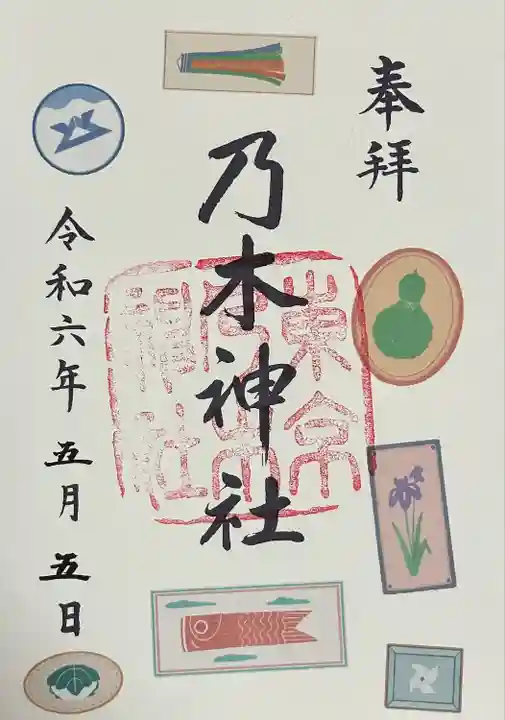 奉拝
乃木神社
東京
乃木
神社
令和六年五月五日